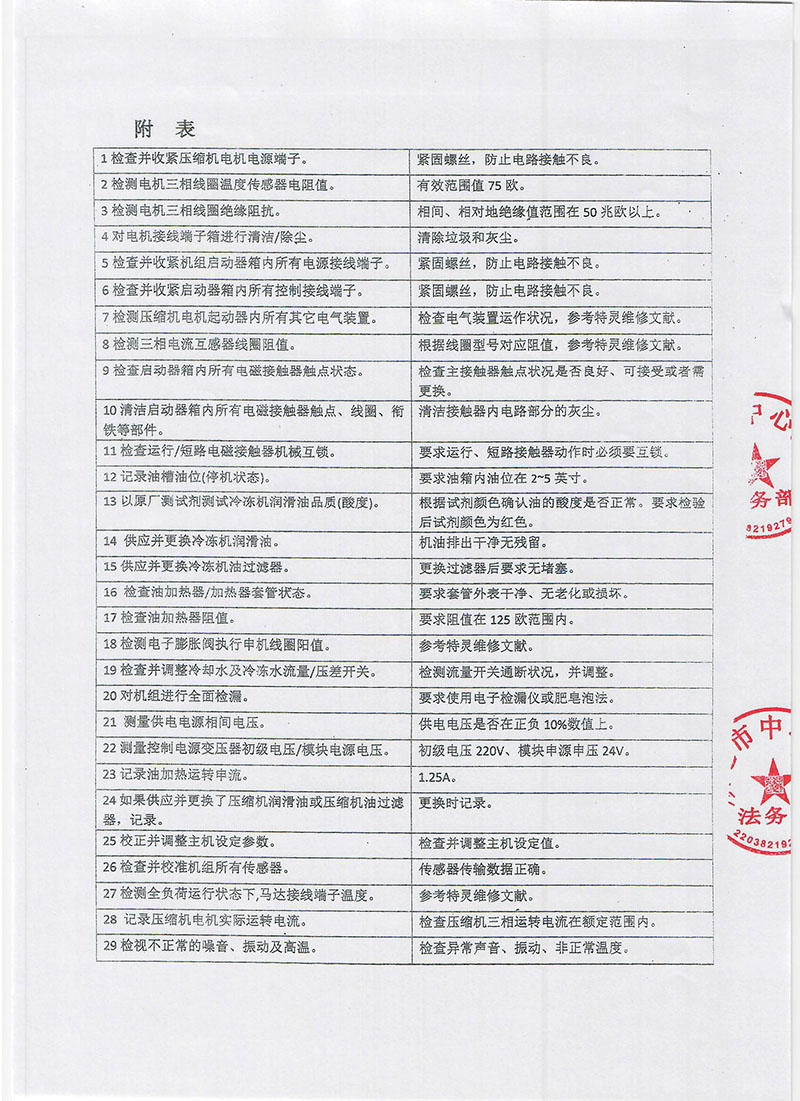 附 表
1 检查并收紧压缩机电机电源端子。
紧固螺丝，防止电路接触不良。
2 检测电机三相线圈温度传感器电阻值。
有效范围值 75 欧。
3 检测电机三相线圈绝缘阻抗。
相间、相对地绝缘值范围在 50 兆欧以上。
4 对电机接线端子箱进行清洁/除尘。
清除垃圾和灰尘。
5 检查并收紧机组启动器箱内所有电源接线端子。
紧固螺丝，防止电路接触不良。
6 检查并收紧启动器箱内所有控制接线端子。
紧固螺丝，防止电路接触不良。
7 检测压缩机电机起动器内所有其它电气装置。
检查电气装置运作状况，参考特灵维修文献。
8 检测三相电流互感器线圈阻值。
根据线圈型号对应阻值，参考特灵维修文献。
9 检查启动器箱内所有电磁接触器触点状态。
检查主接触器触点状况是否良好、可接受或者需
更换。
10 清洁启动器箱内所有电磁接触器触点、线圈、衔
铁等部件。
清洁接触器内电路部分的灰尘。
11 检查运行/短路电磁接触器机械互锁。
要求运行、短路接触器动作时必须要互锁。
12 记录油槽油位(停机状态)。
要求油箱内油位在 2~5 英寸。
13 以原厂测试剂测试冷冻机润滑油品质(酸度)。
根据试剂颜色确认油的酸度是否正常。要求检验
后试剂颜色为红色。
14 供应并更换冷冻机润滑油。
机油排出干净无残留。
15 供应并更换冷冻机油过滤器。
更换过滤器后要求无堵塞。
16 检查油加热器/加热器套管状态。
要求套管外表干净、无老化或损坏。
17 检查油加热器阻值。
要求阻值在 125 欧范围内。
18 检测电子膨胀阀执行申机线圈阳值。
参考特灵维修文献。
19 检查并调整冷却水及冷冻水流量/压差开关。
检测流量开关通断状况，并调整。
20 对机组进行全面检漏。
要求使用电子检漏仪或肥皂泡法。
21 测量供电电源相间电压。
供电电压是否在正负 10%数值上。
22 测量控制电源变压器初级电压/模块电源电压。
初级电压 220V、模块申源申压 24V。
23 记录油加热运转申流。
1.25A。
24 如果供应并更换了压缩机润滑油或压缩机油过滤
器，记录。
更换时记录。
25 校正并调整主机设定参数。
检查并调整主机设定值。
26 检查并校准机组所有传感器。
传感器传输数据正确。
27 检测全负荷运行状态下,马达接线端子温度。
参考特灵维修文献。
28 记录压缩机电机实际运转电流。
检查压缩机三相运转电流在额定范围内。
29 检视不正常的噪音、振动及高温。
检查异常声音、振动、非正常温度。
中心
务部
8219279
市中
法务
220382192